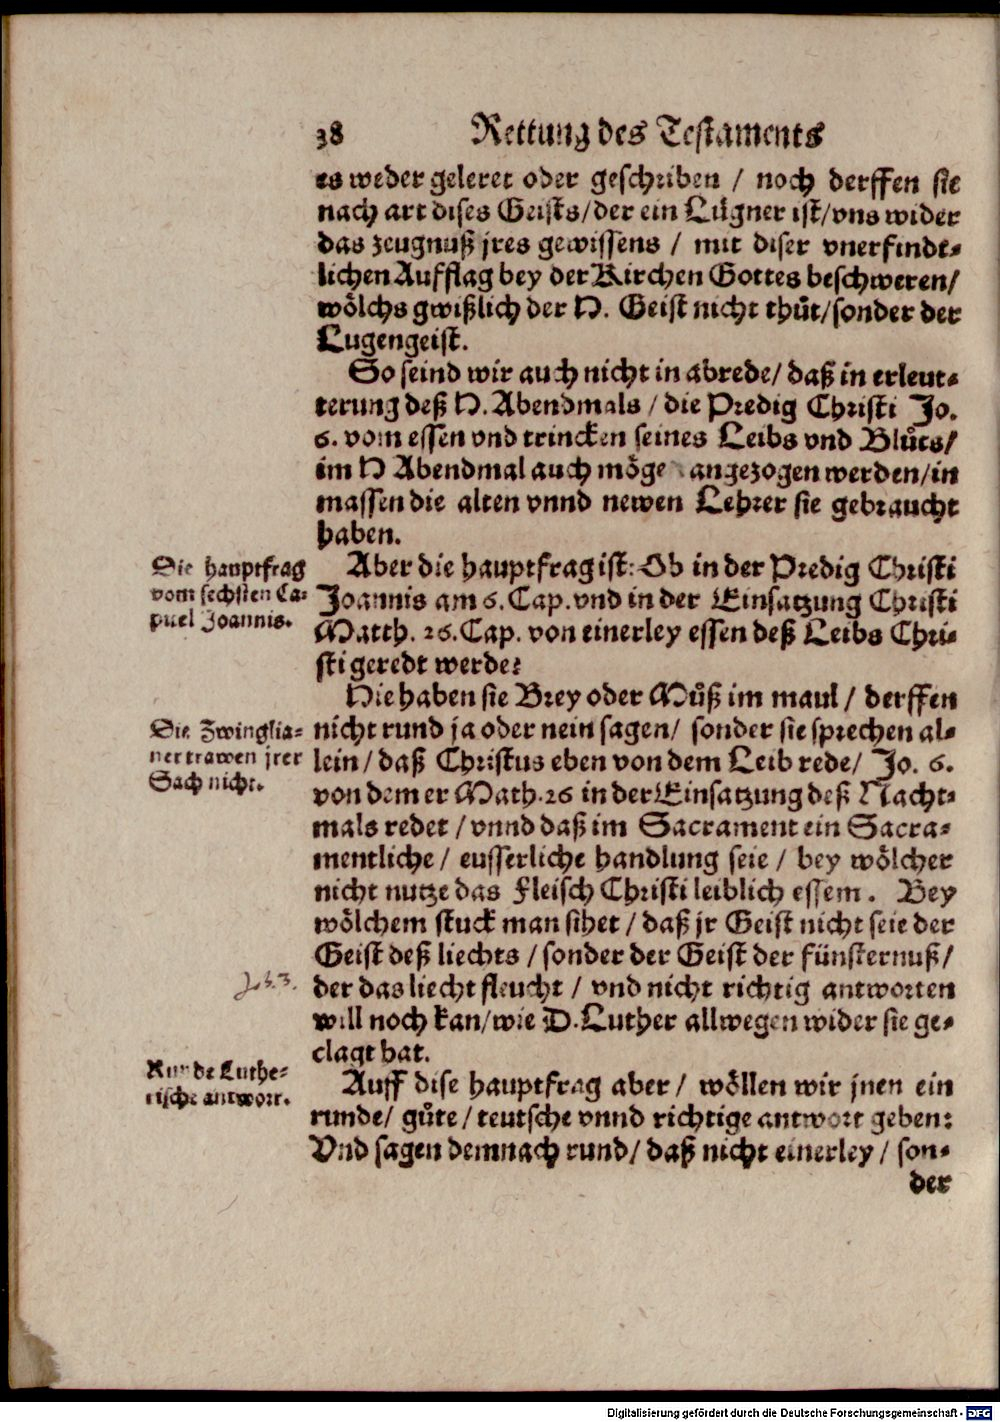 38 Rettung des Testaments
es weder geleret oder geschriben / noch derffen sie
nach art dises Geists/der ein Lügner ist/vns wider
das zeugnuß jres gewissens / mit diser vnerfindt-
lichen Aufflag bey der Kirchen Gottes beschweren/
wölchs gwißlich der H. Geist nicht thůt/sonder der
Lugengeist.
So seind wir auch nicht in abrede/ daß in erleut-
terung deß H. Abendmals / die Predig Christi Jo.
6. vom essen vnd trincken seines Leibs vnd Blůts/
im H Abendmal auch möge angezogen werden/in
massen die alten vnnd newen Lehrer sie gebraucht
haben.
Die hauptfrag
vom sechsten Ca-
pitel Joannis.
Aber die hauptfrag ist: Ob in der Predig Christi
Joannis am 6. Cap. vnd in der Einsatzung Christi
Matth. 26. Cap. von einerley essen deß Leibs Chri-
sti geredt werde?
Die Zwinglia-
ner trawen jrer
Sach nicht.
Hie haben sie Brey oder Můß im maul / derffen
nicht rund ja oder nein sagen/ sonder sie sprechen al-
lein / daß Christus eben von dem Leib rede/ Jo. 6.
von dem er Math. 26 in der Einsatzung deß Nacht-
mals redet / vnnd daß im Sacrament ein Sacra-
mentliche / eusserliche handlung seie / bey wölcher
nicht nutze das Fleisch Christi leiblich essem. Bey
wölchem stuck man sihet / daß jr Geist nicht seie der
Geist deß liechts / sonder der Geist der fünsternuß/
Joh. 3.
der das liecht fleucht / vnd nicht richtig antworten
will noch kan/wie D. Luther allwegen wider sie ge-
clagt hat.
Runde Luthe-
rische antwort.
Auff dise hauptfrag aber / wöllen wir jnen ein
runde/ gůte / teutsche vnnd richtige antwort geben:
Vnd sagen demnach rund/ daß nicht einerley / son-
der
Digitalisierung gefördert durch die Deutsche Forschungsgemeinschaft - DFG